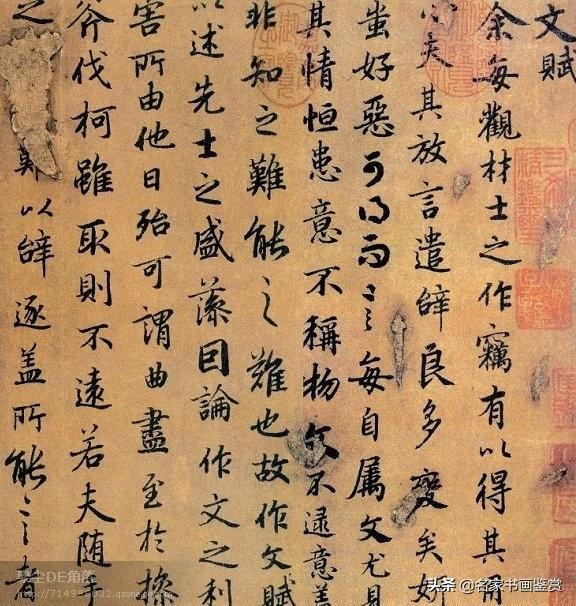 文賦
余每觀材士之作竊有以得其用
心矣其放言遣辭良多變矣妍
蚩好惡可得而言每自属文尤見
其情恒患意不稱物文不逮意蓋
非知之難能之難也故作文賦
以述先士之盛藻因論作文之利
害所由他日殆可謂曲盡至於操
斧伐柯雖取則不遠若夫随手
之難以辭逐盖所能言者
DE角落
头条 @名家书画鉴赏